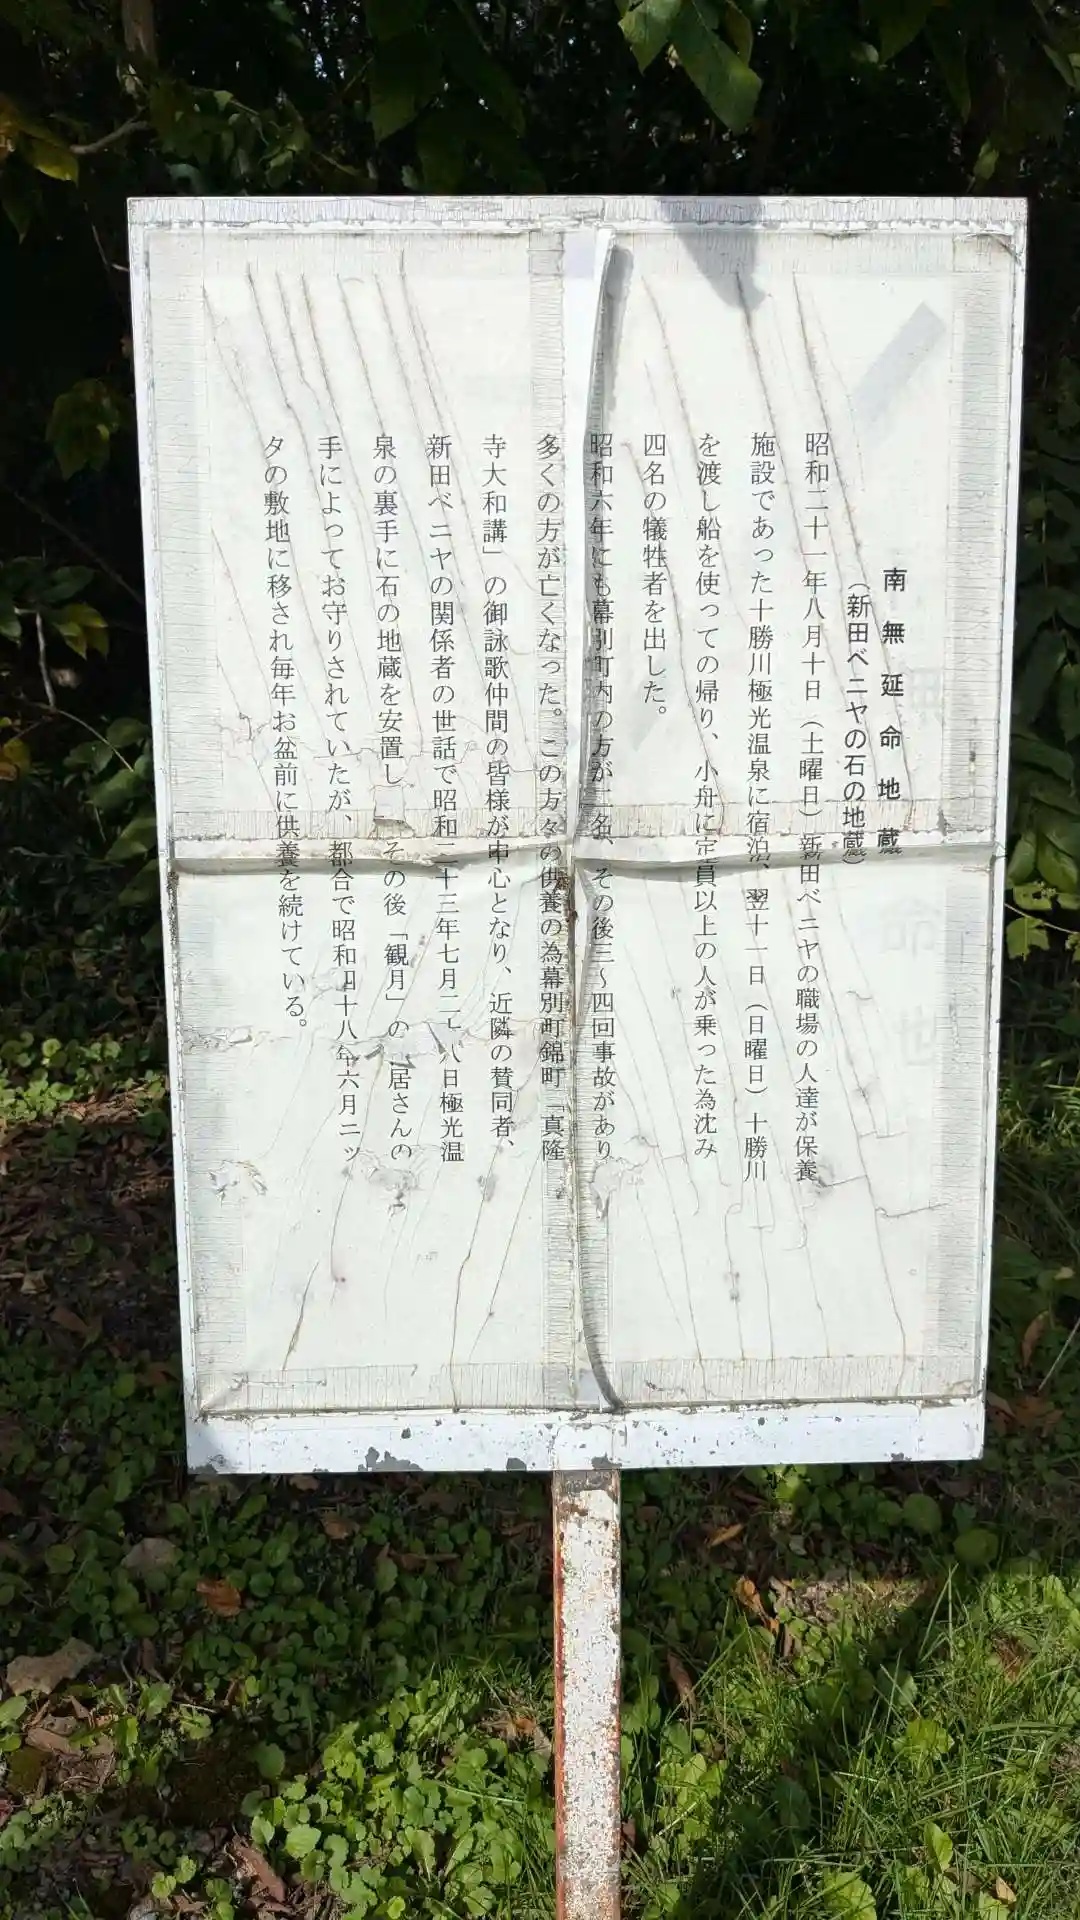 南無延命地蔵
（新田ベニヤの石の地蔵）
昭和二十一年八月十日（土曜日）新田ベニヤの職場の人達が保養
施設であった十勝川極光温泉に宿泊、翌十一日（日曜日）十勝川
を渡し船を使っての帰り、小舟に定員以上の人が乗った為沈み
四名の犠牲者を出した。
昭和六年にも幕別町内の方が二名、その後三～四回事故があり
多くの方が亡くなった。この方々の供養の為幕別町錦町「真隆
寺大和講」の御詠歌仲間の皆様が中心となり、近隣の賛同者、
新田ベニヤの関係者の世話で昭和二十三年七月二十八日極光温
泉の裏手に石の地蔵を安置し、その後「観月」の居さんの
手によってお守りされていたが、都合で昭和四十八年六月ニッ
タの敷地に移され毎年お盆前に供養を続けている。